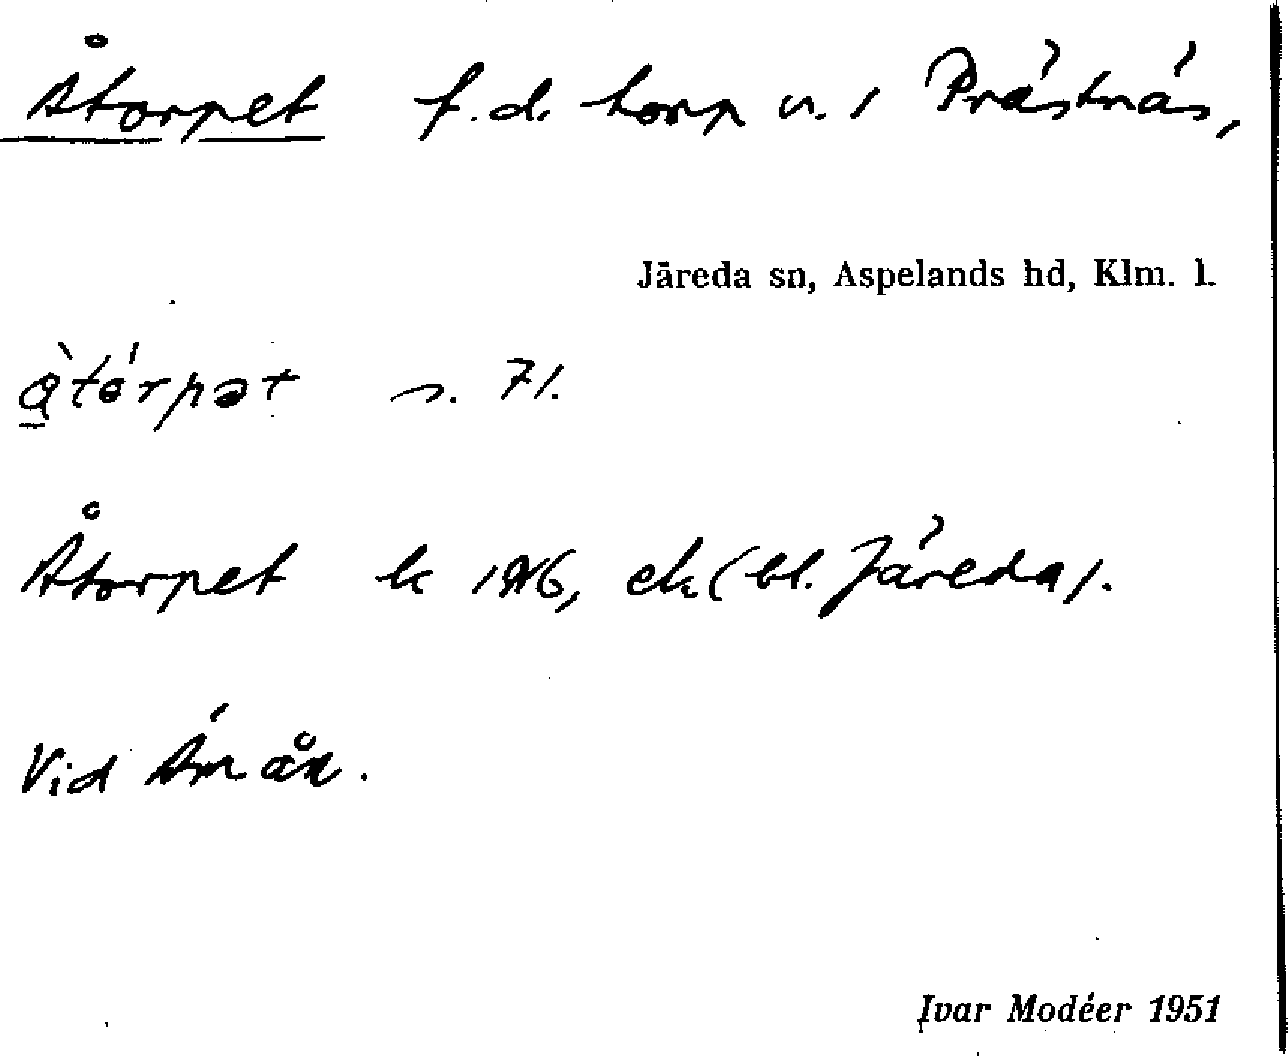 Åtorpet f.d. torp u. / Prästnäs,
Järeda sn, Aspelands hd, Klm. l.
s. 71.
Åtorpet k 1946, ek (bl. Järeda).
Vid Ämån.
Ivar Modéer 1951